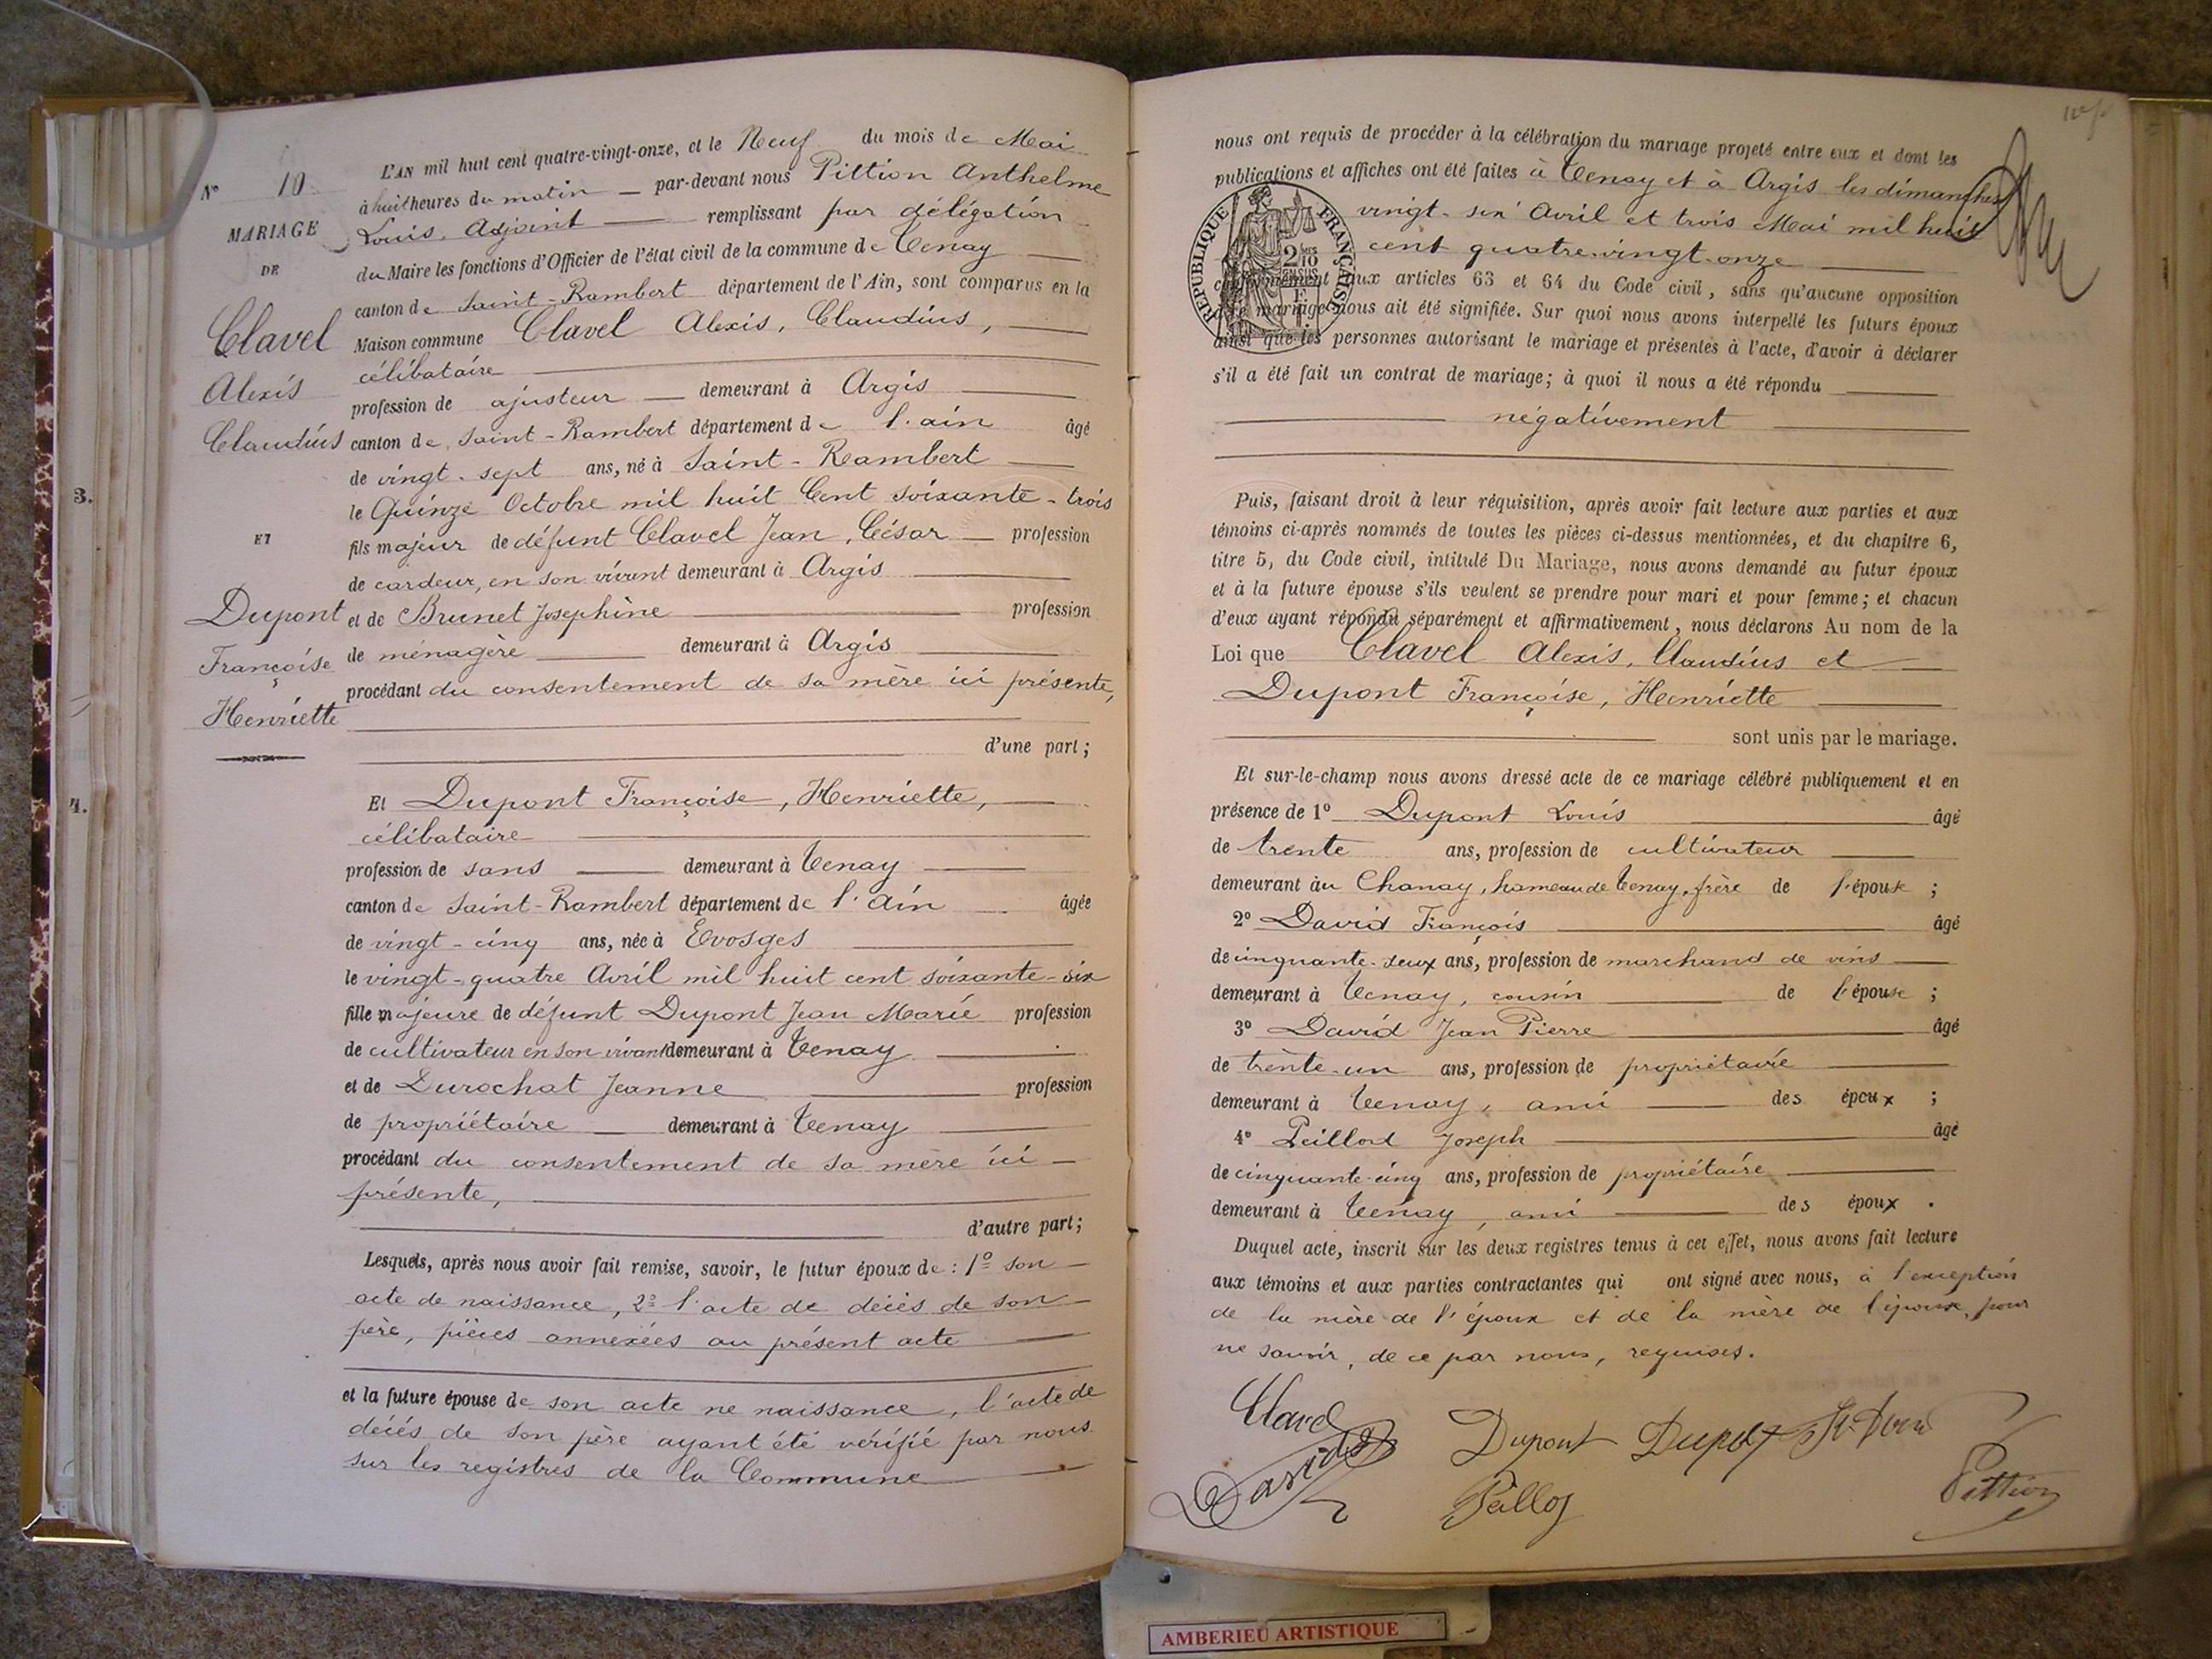 N° 10
MARIAGE
DE
Clavel
Alexis
Claudius
ET
Dupont
Françoise
Henriette
3.
4.
L'AN mil huit cent quatre-vingt-onze, et le Neuf du mois de Mai
à huit heures du matin — par-devant nous Pittion Anthelme
Louis, Adjoint — remplissant par délégation
du Maire les fonctions d'Officier de l'état civil de la commune de Tenay
canton de Saint-Rambert département de l'Ain, sont comparus en la
Maison commune Clavel Alexis, Claudius,
célibataire
profession de ajusteur — demeurant à Argis
canton de Saint-Rambert département de l'ain âgé
de vingt-sept ans, né à Saint-Rambert
le Quinze Octobre mil huit Cent soixante-trois
fils majeur de défunt Clavel Jean, César — profession
de cardeur, en son vivant demeurant à Argis
et de Brunet Josephine profession
de ménagère demeurant à Argis
procédant du consentement de sa mère ici présente,
d'une part;
Et Dupont Françoise, Henriette,
célibataire
profession de sans demeurant à Tenay
canton de Saint-Rambert département de l'Ain âgée
de vingt-cinq ans, née à Evosges
le vingt-quatre Avril mil huit cent soixante-six
fille majeure de défunt Dupont Jean Marie profession
de cultivateur en son vivant demeurant à Tenay
et de Durochat Jeanne profession
de propriétaire demeurant à Tenay
procédant du consentement de sa mère ici
présente,
d'autre part;
Lesquels, après nous avoir fait remise, savoir, le futur époux de : 1° son
acte de naissance, 2° l'acte de décès de son
père, pièces annexées au présent acte
et la future épouse de son acte ne naissance, l'acte de
décés de son père ayant été vérifié par nous
sur les registres de la Commune
nous ont requis de procéder à la célébration du mariage projeté entre eux et dont les
publications et affiches ont été faites à Tenay et à Argis les dimanches
vingt-six Avril et trois Mai mil huit
cent quatre-vingt-onze
conformément aux articles 63 et 64 du Code civil, sans qu'aucune opposition
à ce mariage nous ait été signifiée. Sur quoi nous avons interpellé les futurs époux
ainsi que les personnes autorisant le mariage et présentes à l'acte, d'avoir à déclarer
s'il a été fait un contrat de mariage; à quoi il nous a été répondu
négativement
RÉPUBLIQUE FRANÇAISE
2/10
EN SUS
Puis, faisant droit à leur réquisition, après avoir fait lecture aux parties et aux
témoins ci-après nommés de toutes les pièces ci-dessus mentionnées, et du chapitre 6,
titre 5, du Code civil, intitulé Du Mariage, nous avons demandé au futur époux
et à la future épouse s'ils veulent se prendre pour mari et pour femme; et chacun
d'eux ayant répondu séparément et affirmativement, nous déclarons Au nom de la
Loi que Clavel Alexis, Claudius et
Dupont Françoise, Henriette
sont unis par le mariage.
Et sur-le-champ nous avons dressé acte de ce mariage célébré publiquement et en
présence de 1° Dupont Louis âgé
de trente ans, profession de cultivateur
demeurant au Chanay, hameau de Tenay, frère de l'épouse ;
2° David François âgé
de cinquante-deux ans, profession de marchand de vins
demeurant à Tenay, cousin de l'épouse ;
3° David Jean Pierre âgé
de trente-un ans, profession de propriétaire
demeurant à Tenay, ami des époux ;
4° Peillod Joseph âgé
de cinquante-cinq ans, profession de propriétaire
demeurant à Tenay, ami des époux .
Duquel acte, inscrit sur les deux registres tenus à cet effet, nous avons fait lecture
aux témoins et aux parties contractantes qui ont signé avec nous, à l'exception
de la mère de l'époux et de la mère de l'épouse, pour
ne savoir, de ce par nous, requises.
Clavel
David
Dupont
Dupont
Pittion
AMBERIEU ARTISTIQUE